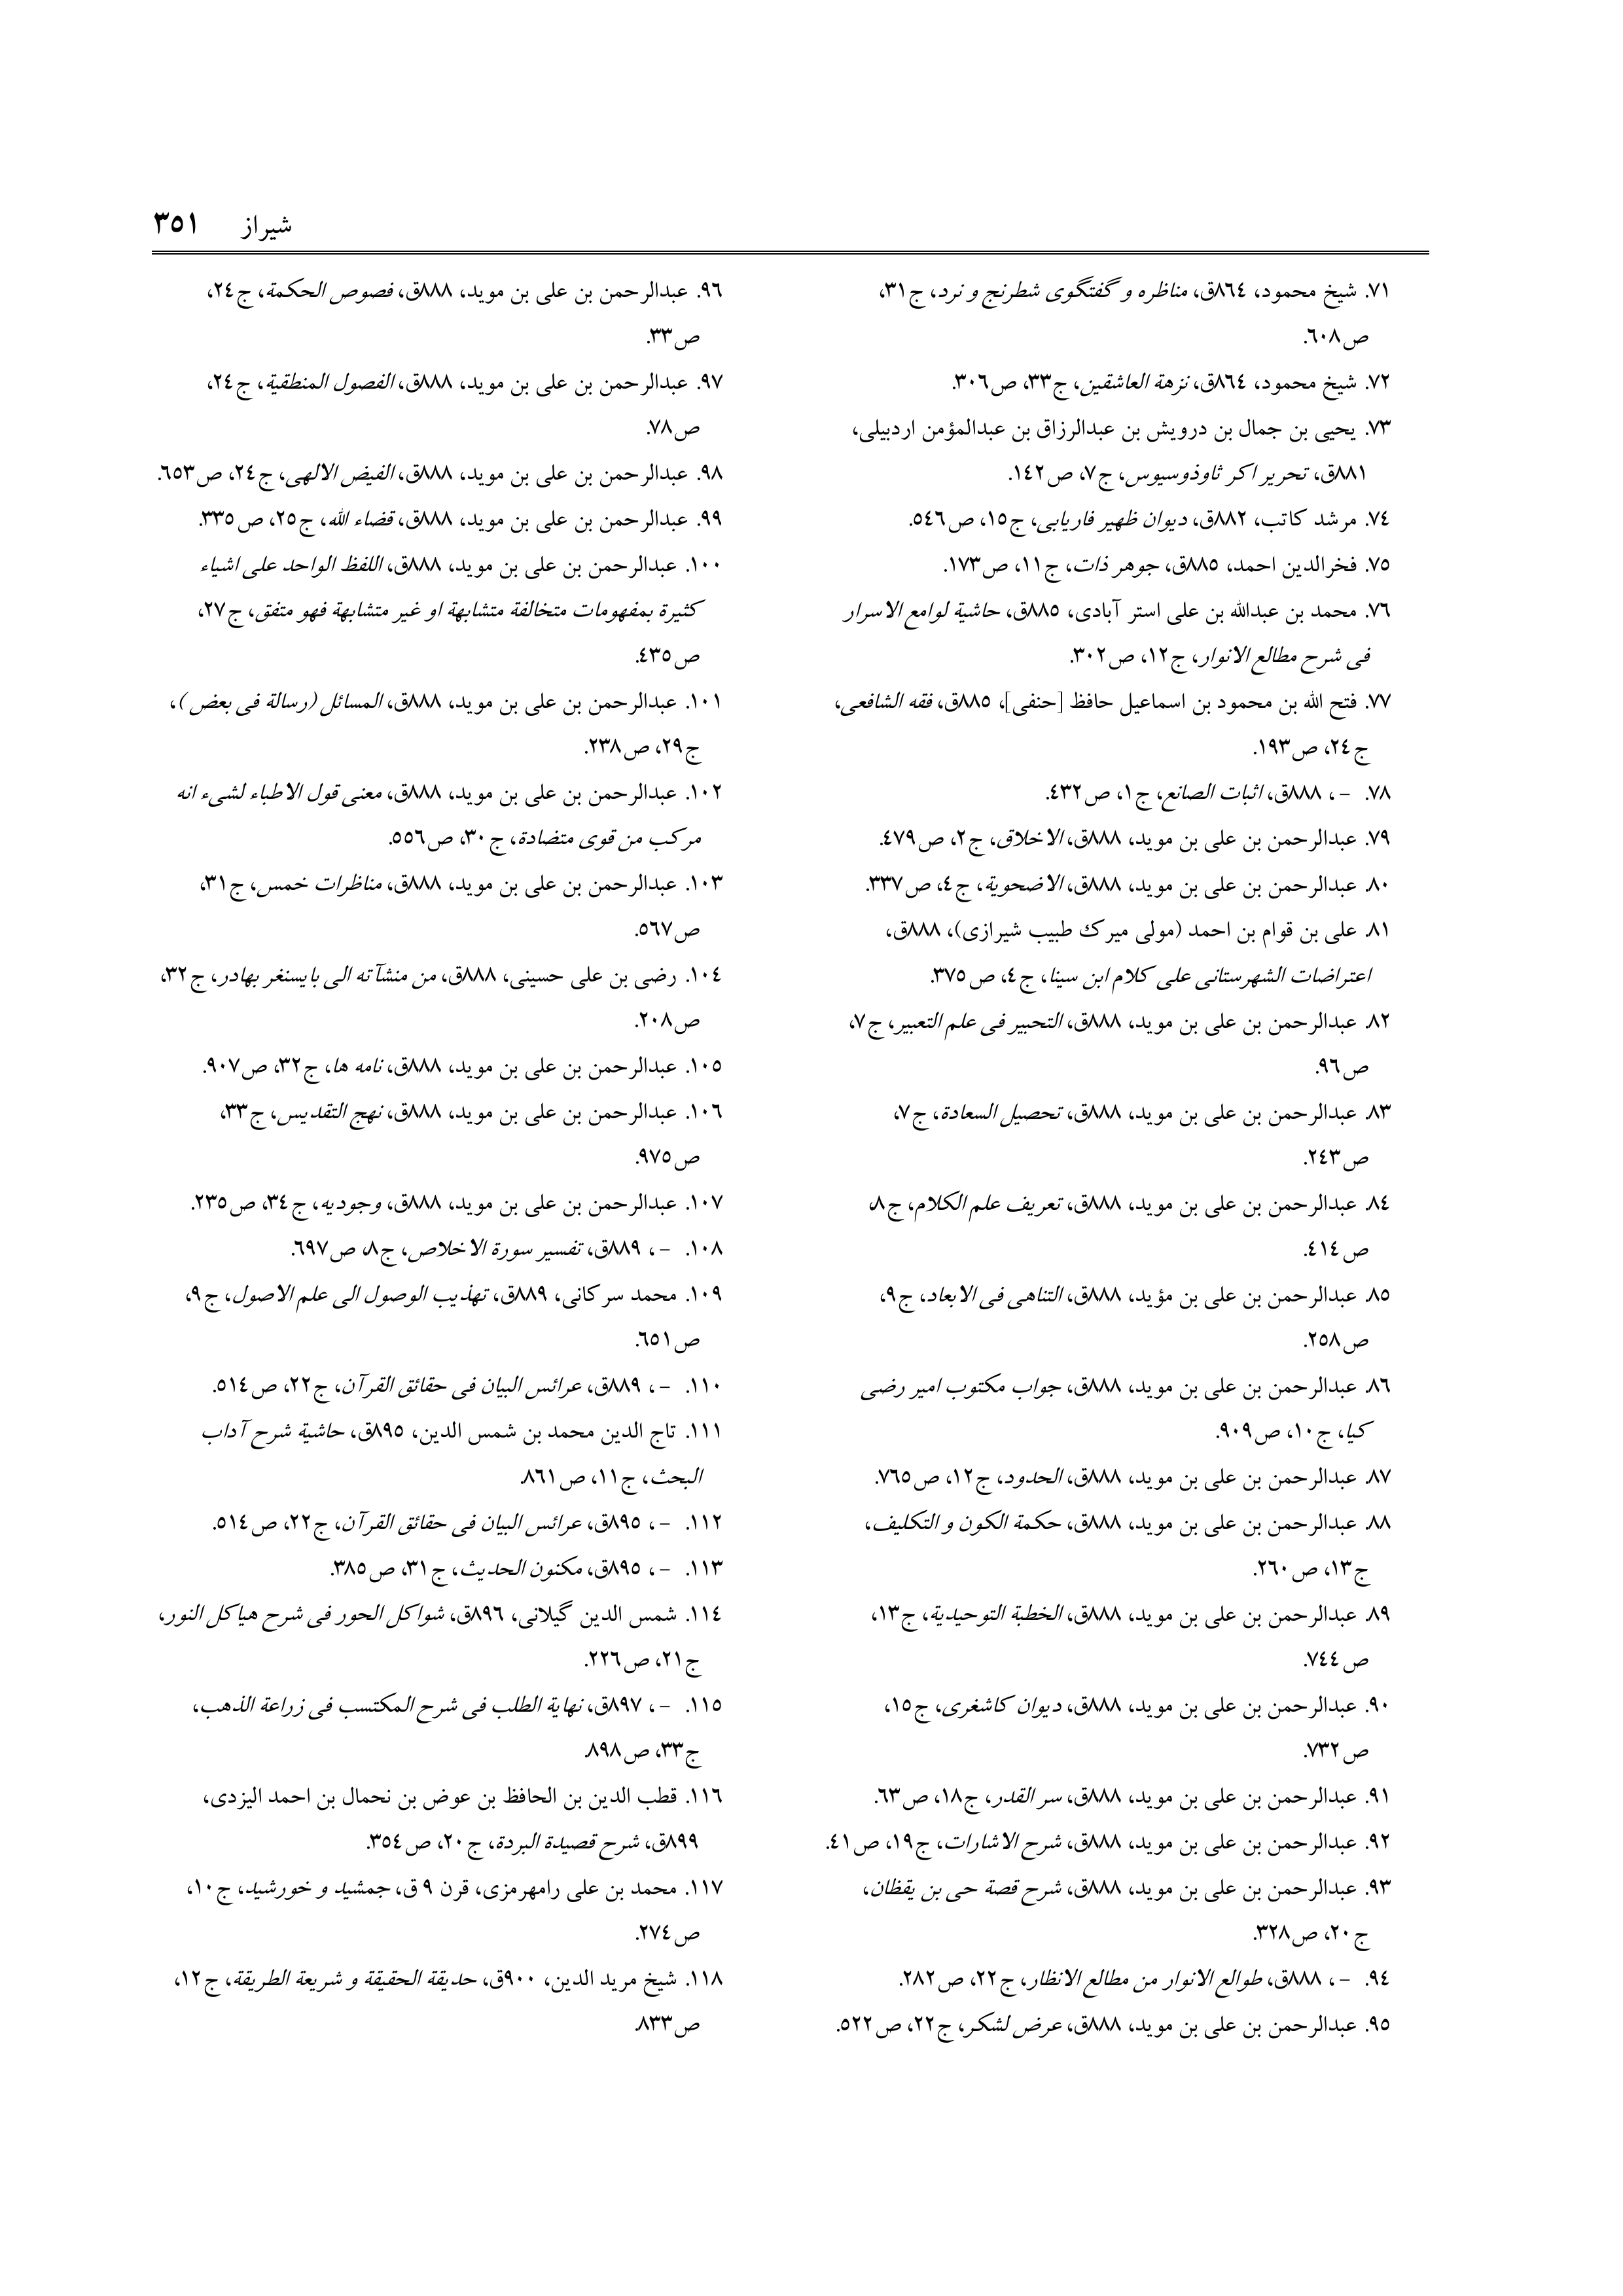 شیراز ٣٥١
٧١. شیخ محمود، ٨٦٤ق، مناظره و گفتگوی شطرنج و نرد، ج٣١،
ص٦٠٨.
٧٢. شیخ محمود، ٨٦٤ق، نزهة العاشقین، ج٣٣، ص٣٠٦.
٧٣. یحیی بن جمال بن درویش بن عبدالرزاق بن عبدالمؤمن اردبیلی،
٨٨١ق، تحریر اکر ثاوذوسیوس، ج٧، ص١٤٢.
٧٤. مرشد کاتب، ٨٨٢ق، دیوان ظهیر فاریابی، ج١٥، ص٥٤٦.
٧٥. فخرالدین احمد، ٨٨٥ق، جوهر ذات، ج١١، ص١٧٣.
٧٦. محمد بن عبدالله بن علی استر آبادی، ٨٨٥ق، حاشیة لوامع الاسرار
فی شرح مطالع الانوار، ج١٢، ص٣٠٢.
٧٧. فتح الله بن محمود بن اسماعیل حافظ [حنفی]، ٨٨٥ق، فقه الشافعی،
ج٢٤، ص١٩٣.
٧٨. -، ٨٨٨ق، اثبات الصانع، ج١، ص٤٣٢.
٧٩. عبدالرحمن بن علی بن موید، ٨٨٨ق، الاخلاق، ج٢، ص٤٧٩.
٨٠. عبدالرحمن بن علی بن موید، ٨٨٨ق، الاضحویة، ج٤، ص٣٣٧.
٨١. علی بن قوام بن احمد (مولی میرک طبیب شیرازی)، ٨٨٨ق،
اعتراضات الشهرستانی علی کلام ابن سینا، ج٤، ص٣٧٥.
٨٢. عبدالرحمن بن علی بن موید، ٨٨٨ق، التحبیر فی علم التعبیر، ج٧،
ص٩٦.
٨٣. عبدالرحمن بن علی بن موید، ٨٨٨ق، تحصیل السعادة، ج٧،
ص٢٤٣.
٨٤. عبدالرحمن بن علی بن موید، ٨٨٨ق، تعریف علم الکلام، ج٨،
ص٤١٤.
٨٥. عبدالرحمن بن علی بن مؤید، ٨٨٨ق، التناهی فی الابعاد، ج٩،
ص٢٥٨.
٨٦. عبدالرحمن بن علی بن موید، ٨٨٨ق، جواب مکتوب امیر رضی
کیا، ج١٠، ص٩٠٩.
٨٧. عبدالرحمن بن علی بن موید، ٨٨٨ق، الحدود، ج١٢، ص٧٦٥.
٨٨. عبدالرحمن بن علی بن موید، ٨٨٨ق، حکمة الکون و التکلیف،
ج١٣، ص٢٦٠.
٨٩. عبدالرحمن بن علی بن موید، ٨٨٨ق، الخطبة التوحیدیة، ج١٣،
ص٧٤٤.
٩٠. عبدالرحمن بن علی بن موید، ٨٨٨ق، دیوان کاشغری، ج١٥،
ص٧٣٢.
٩١. عبدالرحمن بن علی بن موید، ٨٨٨ق، سر القدر، ج١٨، ص٦٣.
٩٢. عبدالرحمن بن علی بن موید، ٨٨٨ق، شرح الاشارات، ج١٩، ص٤١.
٩٣. عبدالرحمن بن علی بن موید، ٨٨٨ق، شرح قصة حی بن یقظان،
ج٢٠، ص٣٢٨.
٩٤. -، ٨٨٨ق، طوالع الانوار من مطالع الانظار، ج٢٢، ص٢٨٢.
٩٥. عبدالرحمن بن علی بن موید، ٨٨٨ق، عرض لشکر، ج٢٢، ص٥٢٢.
٩٦. عبدالرحمن بن علی بن موید، ٨٨٨ق، فصوص الحکمة، ج٢٤،
ص٣٣.
٩٧. عبدالرحمن بن علی بن موید، ٨٨٨ق، الفصول المنطقیة، ج٢٤،
ص٧٨.
٩٨. عبدالرحمن بن علی بن موید، ٨٨٨ق، الفیض الالهی، ج٢٤، ص٦٥٣.
٩٩. عبدالرحمن بن علی بن موید، ٨٨٨ق، قضاء الله، ج٢٥، ص٣٣٥.
١٠٠. عبدالرحمن بن علی بن موید، ٨٨٨ق، اللفظ الواحد علی اشیاء
کثیرة بمفهومات متخالفة متشابهة او غیر متشابهة فهو متفق، ج٢٧،
ص٤٣٥.
١٠١. عبدالرحمن بن علی بن موید، ٨٨٨ق، المسائل (رسالة فی بعض)،
ج٢٩، ص٢٣٨.
١٠٢. عبدالرحمن بن علی بن موید، ٨٨٨ق، معنی قول الاطباء لشیء انه
مرکب من قوی متضادة، ج٣٠، ص٥٥٦.
١٠٣. عبدالرحمن بن علی بن موید، ٨٨٨ق، مناظرات خمس، ج٣١،
ص٥٦٧.
١٠٤. رضی بن علی حسینی، ٨٨٨ق، من منشآته الی بایسنغر بهادر، ج٣٢،
ص٢٠٨.
١٠٥. عبدالرحمن بن علی بن موید، ٨٨٨ق، نامه ها، ج٣٢، ص٩٠٧.
١٠٦. عبدالرحمن بن علی بن موید، ٨٨٨ق، نهج التقدیس، ج٣٣،
ص٩٧٥.
١٠٧. عبدالرحمن بن علی بن موید، ٨٨٨ق، وجودیه، ج٣٤، ص٢٣٥.
١٠٨. -، ٨٨٩ق، تفسیر سورة الاخلاص، ج٨، ص٦٩٧.
١٠٩. محمد سرکانی، ٨٨٩ق، تهذیب الوصول الی علم الاصول، ج٩،
ص٦٥١.
١١٠. -، ٨٨٩ق، عرائس البیان فی حقائق القرآن، ج٢٢، ص٥١٤.
١١١. تاج الدین محمد بن شمس الدین، ٨٩٥ق، حاشیة شرح آداب
البحث، ج١١، ص٨٦١.
١١٢. -، ٨٩٥ق، عرائس البیان فی حقائق القرآن، ج٢٢، ص٥١٤.
١١٣. -، ٨٩٥ق، مکنون الحدیث، ج٣١، ص٣٨٥.
١١٤. شمس الدین گیلانی، ٨٩٦ق، شواکل الحور فی شرح هیاکل النور،
ج٢١، ص٢٢٦.
١١٥. -، ٨٩٧ق، نهایة الطلب فی شرح المکتسب فی زراعة الذهب،
ج٣٣، ص٨٩٨.
١١٦. قطب الدین بن الحافظ بن عوض بن نحمال بن احمد الیزدی،
٨٩٩ق، شرح قصیدة البردة، ج٢٠، ص٣٥٤.
١١٧. محمد بن علی رامهرمزی، قرن ٩ ق، جمشید و خورشید، ج١٠،
ص٢٧٤.
١١٨. شیخ مرید الدین، ٩٠٠ق، حدیقة الحقیقة و شریعة الطریقة، ج١٢،
ص٨٣٣.